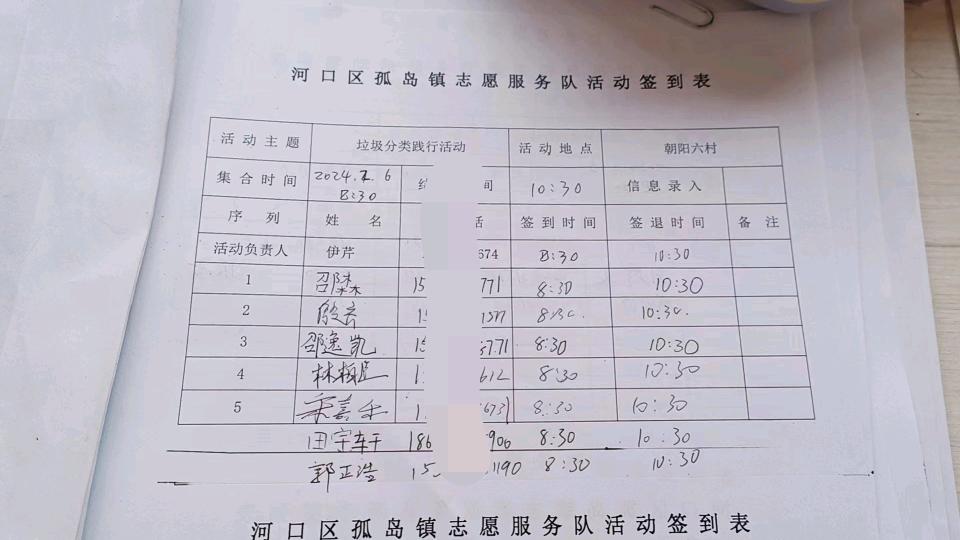 河口区孤岛镇志愿服务队活动签到表
活动主题 垃圾分类践行活动 活动地点 朝阳六村
集合时间 2024.7.6 8:30 间 10:30 信息录入
序列 姓名 话 签到时间 签退时间 备注
活动负责人 伊芹 674 8:30 10:30
1 15 771 8:30 10:30
2 殷玄 15 1577 8:30. 10:30.
3 邵逸凯 15 5771 8:30 10:30
4 1 612 8:30 10:30
5 1 6731 8:30 10:30
田宇轩 186 906 8:30 10:30
郭正浩 15 1190 8:30 10:30
河口区孤岛镇志愿服务队活动签到表